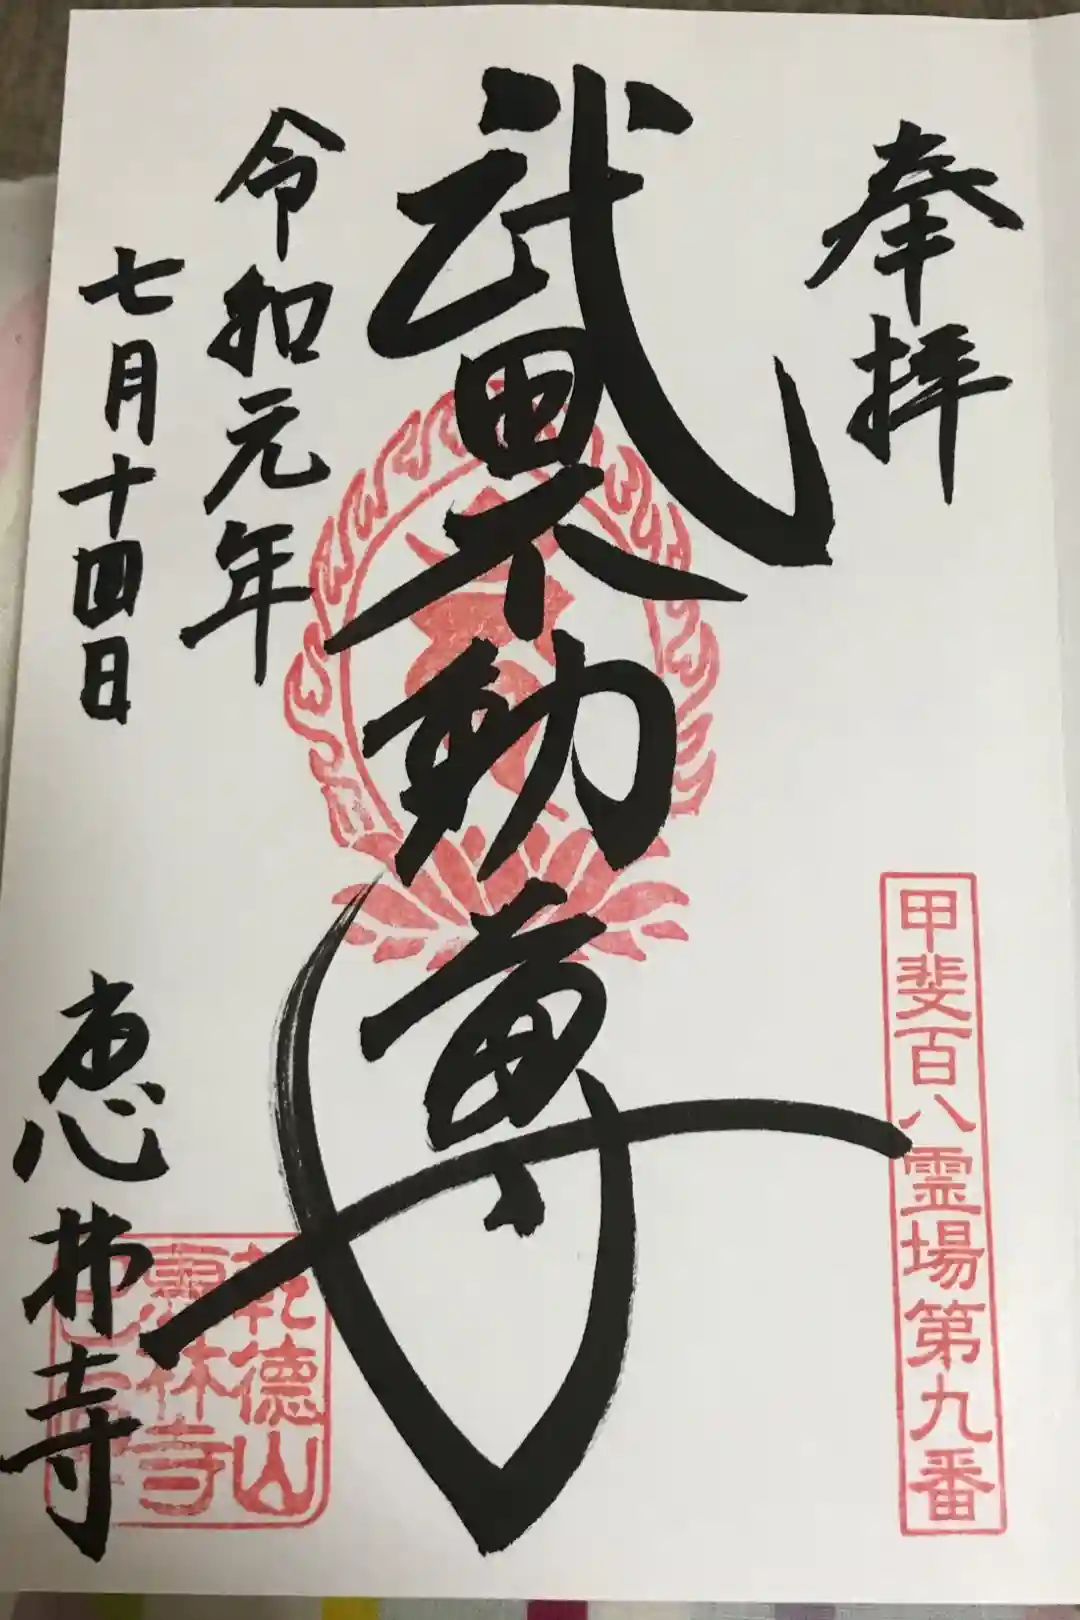 奉拝
甲斐百八霊場第九番
武田不動尊
令和元年
七月十四日
恵林寺
乾徳山
恵林寺